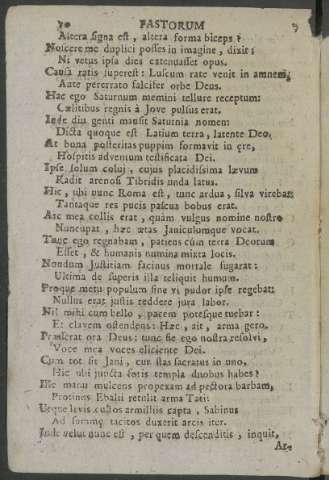 30 PASTORUM
Altera signa est, altera forma biceps?
Noscere me duplici posses in imagine, dixit:
Ni vetus ipsa dies extenuasset opus.
Causa ratis superest: Luscum rate venit in amnem,
Ante pererrato falcifer orbe Deus.
Hac ego Saturnum memini tellure receptum:
Cælitibus regnis à Jove pulsus erat.
Inde diu genti mansit Saturnia nomen:
Dicta quoque est Latium terra, latente Deo.
At bona posteritas puppim formavit in ære,
Hospitis adventum testificata Dei.
Ipse solum colui, cujus placidissima lævum
Radit arenosi Tibridis unda latus.
Hic, ubi nunc Roma est, tunc ardua, silva virebat:
Tantaque res pucis pascua bobus erat.
Arx mea collis erat, quàm vulgus nomine nostro
Nuncupat, hæc ætas Janiculumque vocat.
Tunc ego regnabam, patiens cùm terra Deorum
Esset, & humanis numina mixta locis.
Nondum Justitiam facinus mortale fugarat:
Ultima de superis illa reliquit humum.
Proque metu populum sine vi pudor ipse regebat:
Nullus erat justis reddere jura labor.
Nil mihi cum bello, pacem potesque tuebar:
Et clavem ostendens: Hæc, ait, arma gero.
Presserat ora Deus: tunc sic ego nostra resolvi,
Voce mea voces eliciente Dei.
Cum tot sit Jani, cur stas sacratus in uno,
Hic ubi juncta foris templa duobus habes?
Ille manu mulcens propexam ad pectora barbam,
Protinus Ebalii retulit arma Tati:
Utque levis custos armillis capta, Sabinus
Ad summæ tacitos duxerit arcis iter.
Inde velut nunc est, per quem descenditis, inquit,
Ar-